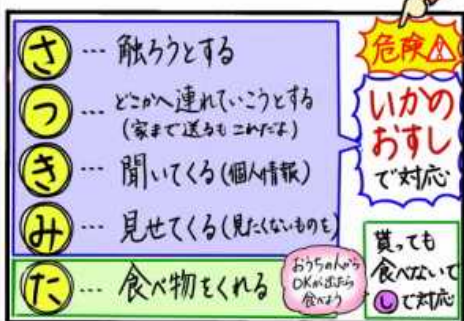 さ … 触ろうとする
つ … どこかへ連れていこうとする
(家まで送るもこれだよ)
き … 聞いてくる(個人情報)
み … 見せてくる(見たくないものを)
た … 食べ物をくれる
おうちの人から
OKが出たら
食べよう
危険⚠
いかの
おすし
で対応
貰っても
食べないで
しで対応